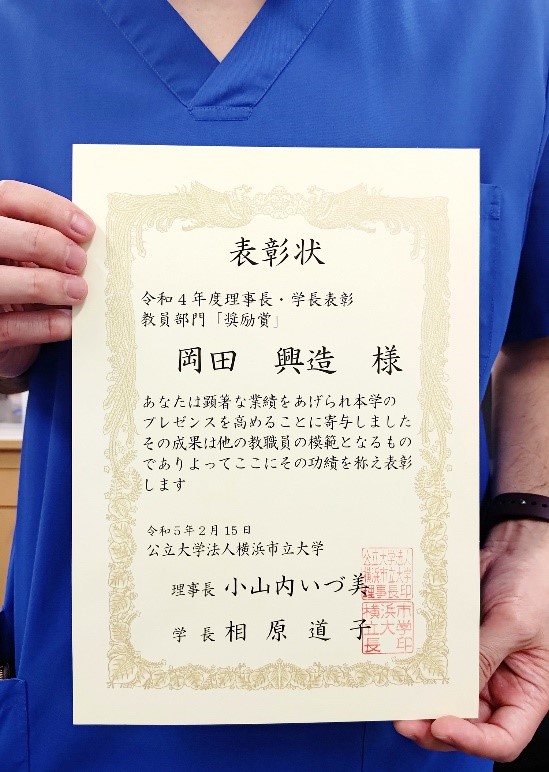 表彰状
令和４年度理事長・学長表彰
教員部門「奨励賞」
岡田　興造　様
あなたは顕著な業績をあげられ本学の
プレゼンスを高めることに寄与しました
その成果は他の教職員の模範となるもの
でありよってここにその功績を称え表彰
します
令和５年２月１５日
公立大学法人横浜市立大学
理事長　小山内いづ美
学　長　相　原　道　子
公立大学法人
横浜市立大学
理事長印
横浜市
立大学
長印